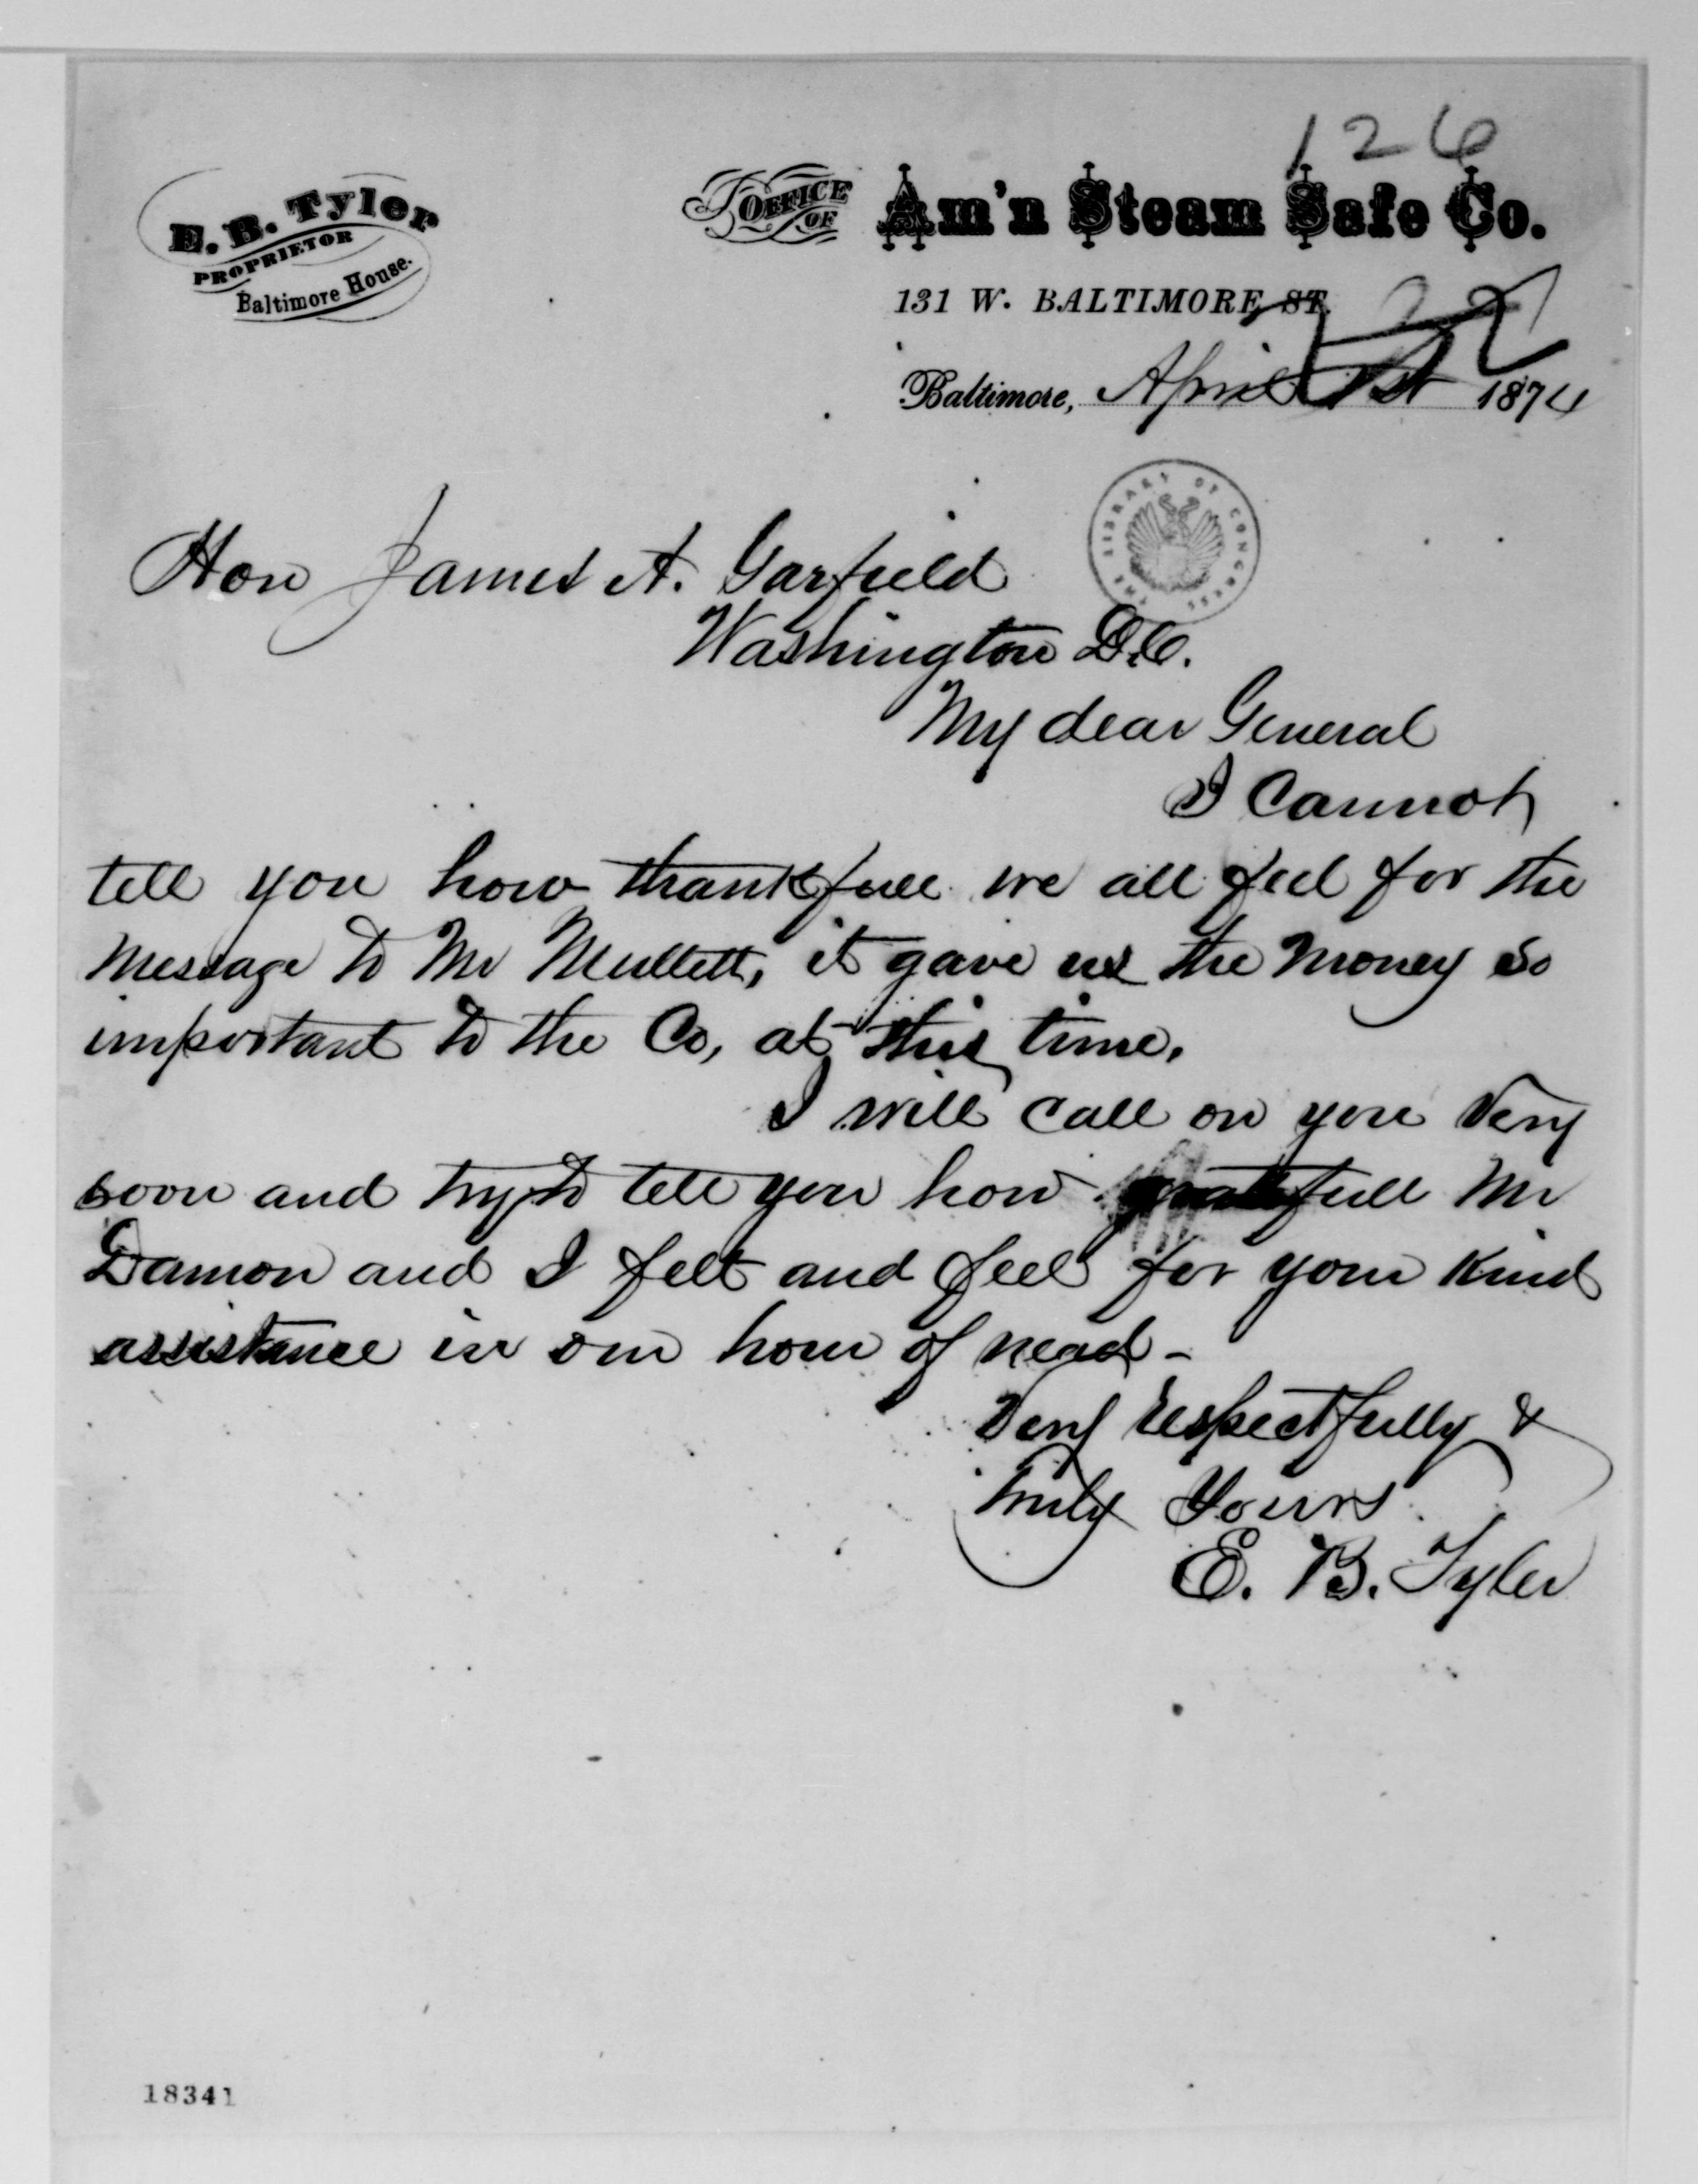 126
E. B. Tyler
PROPRIETOR
Baltimore House.
OFFICE OF Am'n Steam Safe Co.
131 W. BALTIMORE ST.
Baltimore, April 1st 1874
THE LIBRARY OF CONGRESS
Hon James A. Garfield
Washington D.C.
My dear General
I Cannot
tell you how thankfull we all feel for the
message to Mr Mullett, it gave us the money so
important to the Co, at this time.
I will call on you Very
soon and try to tell you how gratefull Mr
Damon and I felt and feel for your kind
assistance in our hour of nead -
Very respectfully &
truly Yours
E. B. Tyler
18341